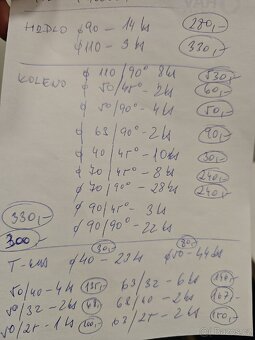 HRDLO ø90 - 14 ks 280,-
ø110 - 3 ks 330,-
KOLENO ø 110/90° 8 ks 530,-
ø 50/45° - 2 ks 60,-
ø 50/90° - 4 ks 50,-
ø 63/90° - 2 ks 90,-
ø 40/45° - 10 ks 30,-
ø 70/45° - 8 ks 240,-
ø 70/90° - 28 ks 240,-
330,- ø 90/45° - 3 ks
300,- ø 90/90° - 22 ks
T-kus ø40 - 22 ks 30,- ø50 - 44 ks 80,-
50/40 - 4 ks 135,- 63/32 - 6 ks
50/32 - 2 ks 63/40 - 2 ks 167,-
50/25 - 1 ks 100,- 63/25 - 2 ks 150,-